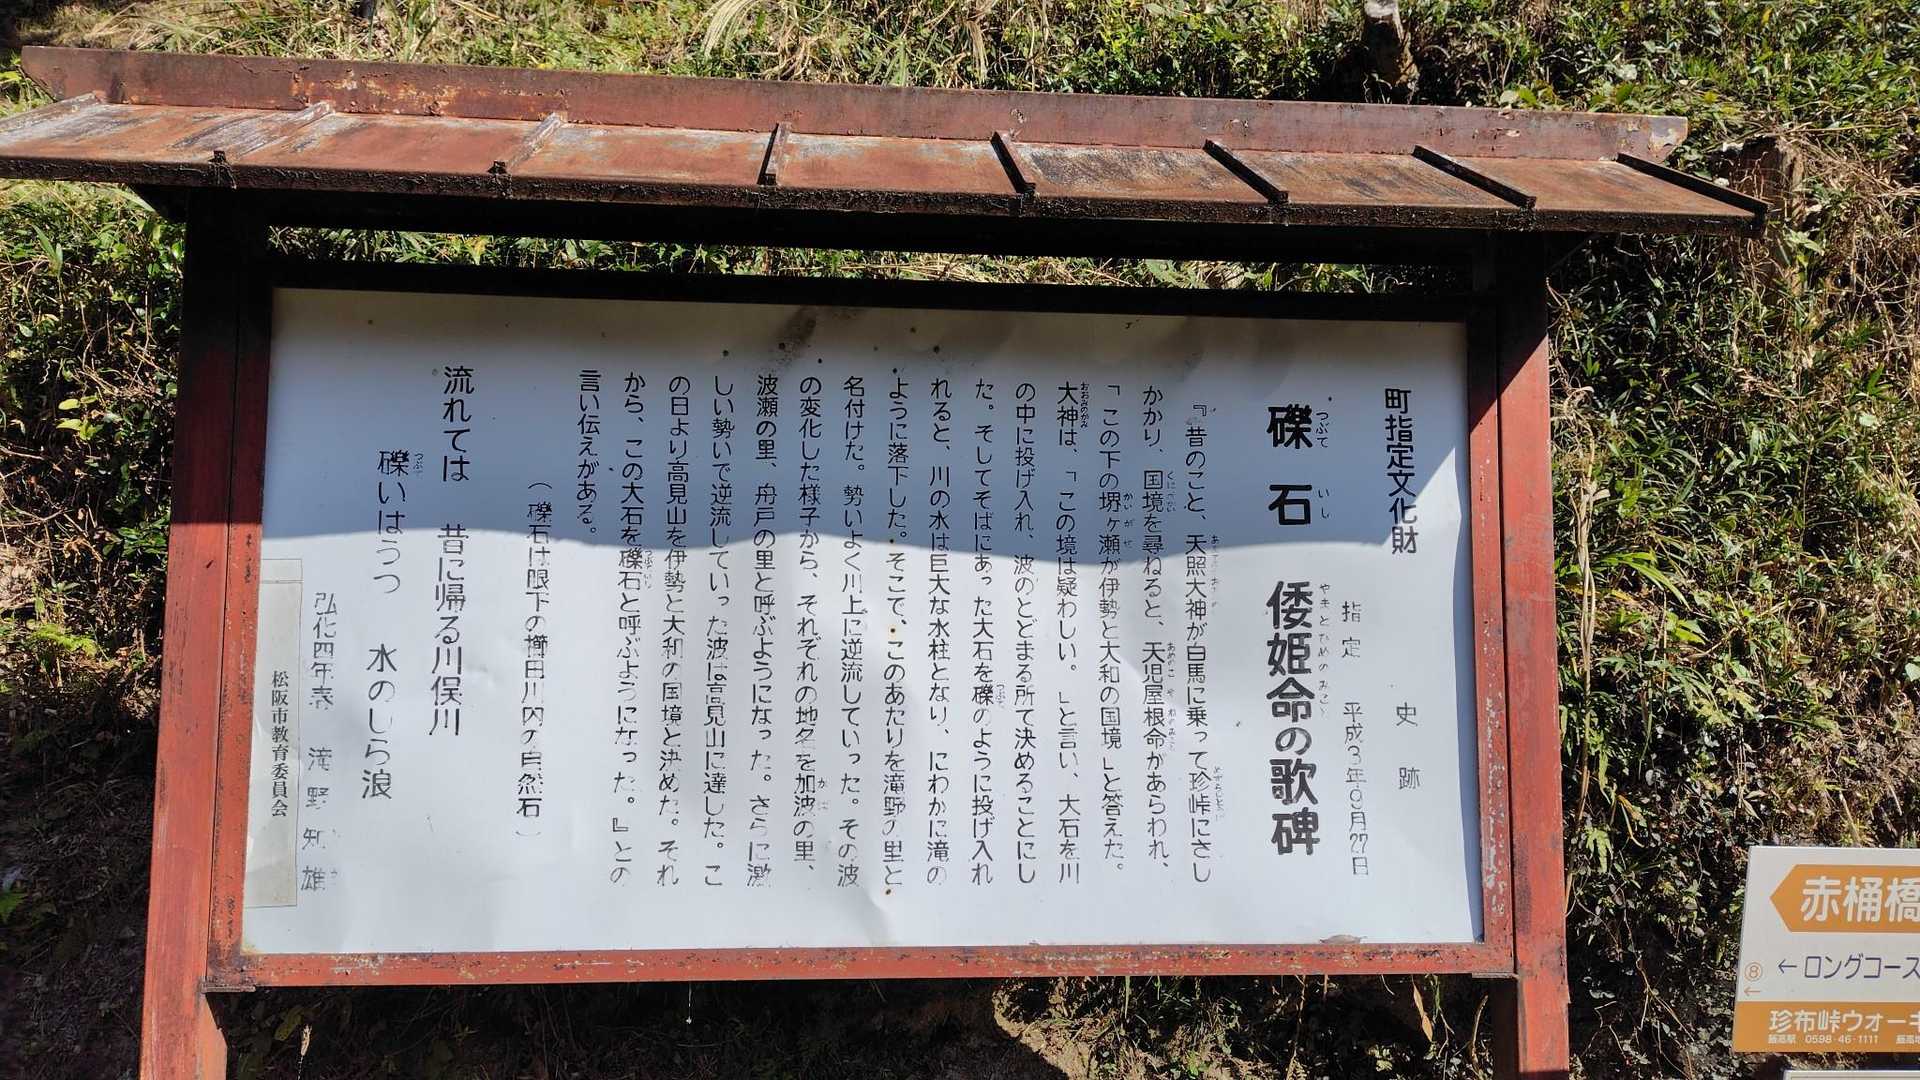 町指定文化財
史跡
指定 平成3年9月27日
礫石 倭姫命の歌碑
つぶて いし やまとひめのみこと
『昔のこと、天照大神が白馬に乗って珍峠にさし
かかり、国境を尋ねると、天児屋根命があらわれ、
「この下の堺ヶ瀬が伊勢と大和の国境」と答えた。
大神は、「この境は疑わしい。」と言い、大石を川
の中に投げ入れ、波のとどまる所で決めることにし
た。そしてそばにあった大石を礫のように投げ入れ
れると、川の水は巨大な水柱となり、にわかに滝の
ように落下した。そこで、このあたりを滝野の里と
名付けた。勢いよく川上に逆流していった。その波
の変化した様子から、それぞれの地名を加波の里、
波瀬の里、舟戸の里と呼ぶようになった。さらに激
しい勢いで逆流していった波は高見山に達した。こ
の日より高見山を伊勢と大和の国境と決めた。それ
から、この大石を礫石と呼ぶようになった。』との
言い伝えがある。
（礫石は眼下の櫛田川内の自然石）
流れては 昔に帰る川俣川
礫いはうつ 水のしら浪
弘化四年春 滝野知雄
松阪市教育委員会
赤桶橋
⑧ ←ロングコース
←
珍布峠ウォーキ
飯高駅 0598-46-1111 飯高地